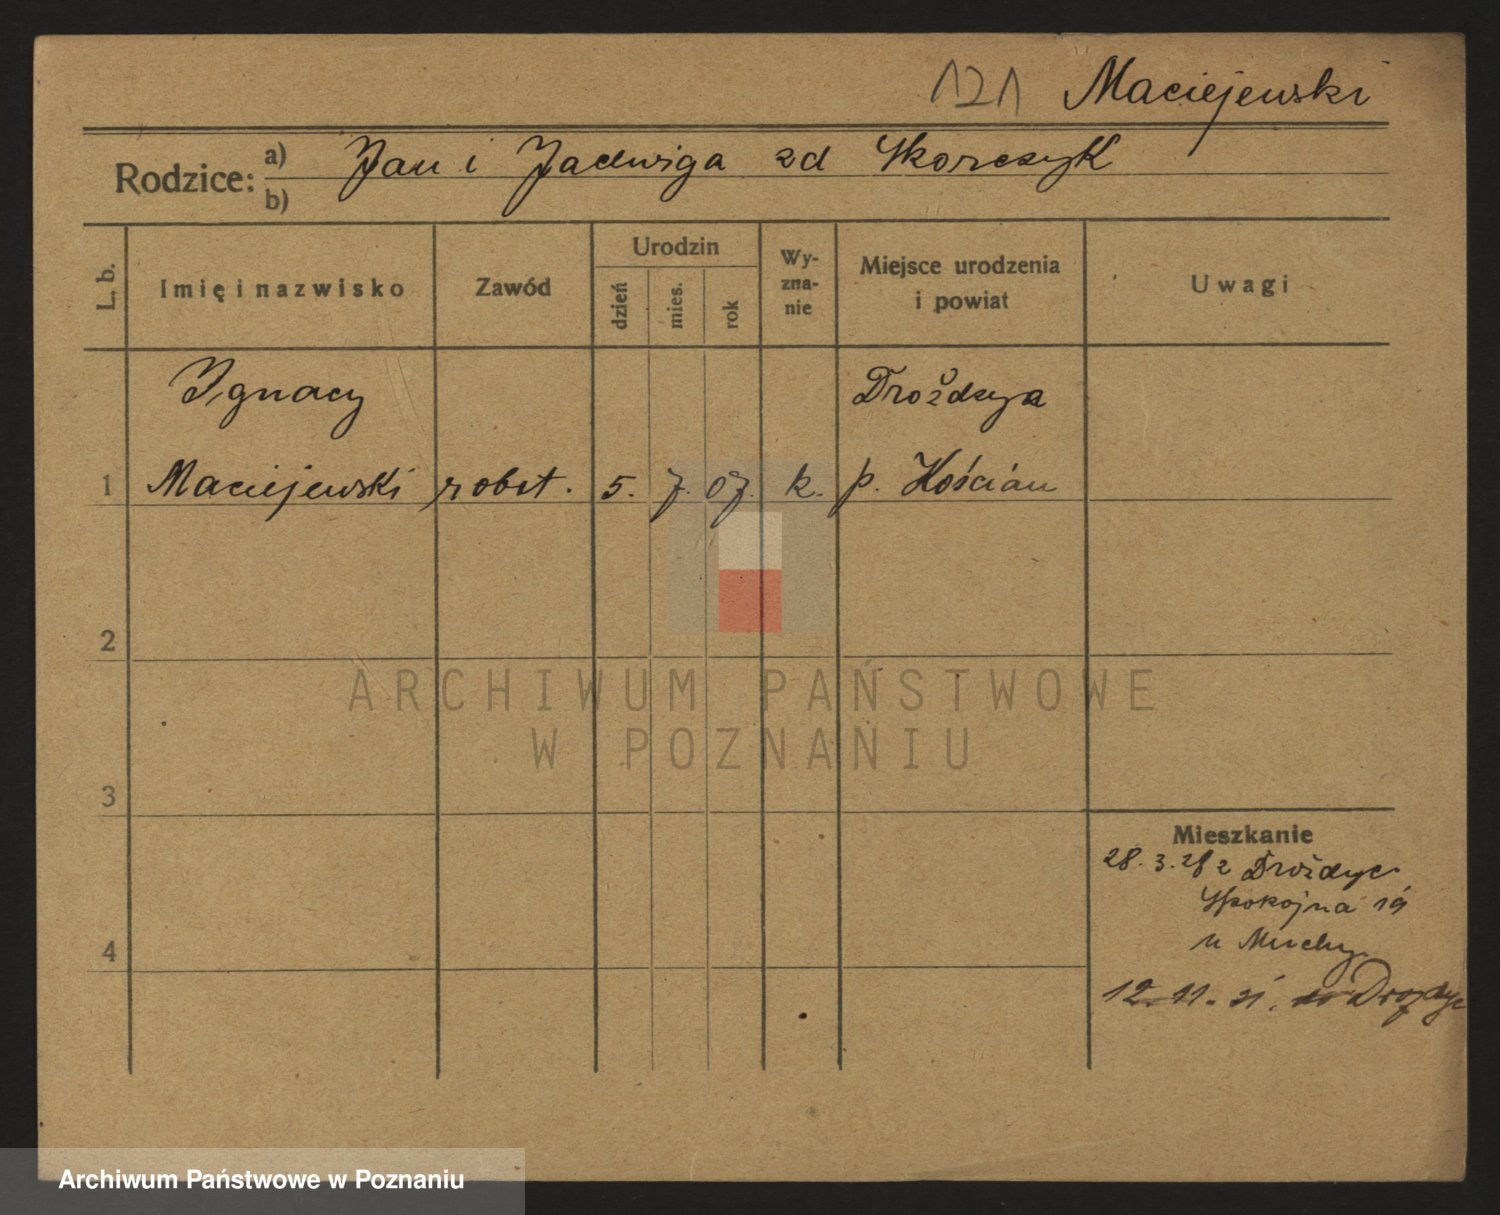 121 Maciejewski
Rodzice: a) Jan i Jadwiga zd Skorczyk
b)
L. b. Imię i nazwisko Zawód Urodzin dzień mies. rok Wyznanie Miejsce urodzenia i powiat Uwagi
Ignacy Drożdzyn
1 Maciejewski robot. 5. 7. 07. k. p. Kościan
2
ARCHIWUM PAŃSTWOWE
W POZNANIU
3
Mieszkanie
28. 3. 28 z
Spokojna 19
u Muchy
4
12. 11. 31. do
Archiwum Państwowe w Poznaniu